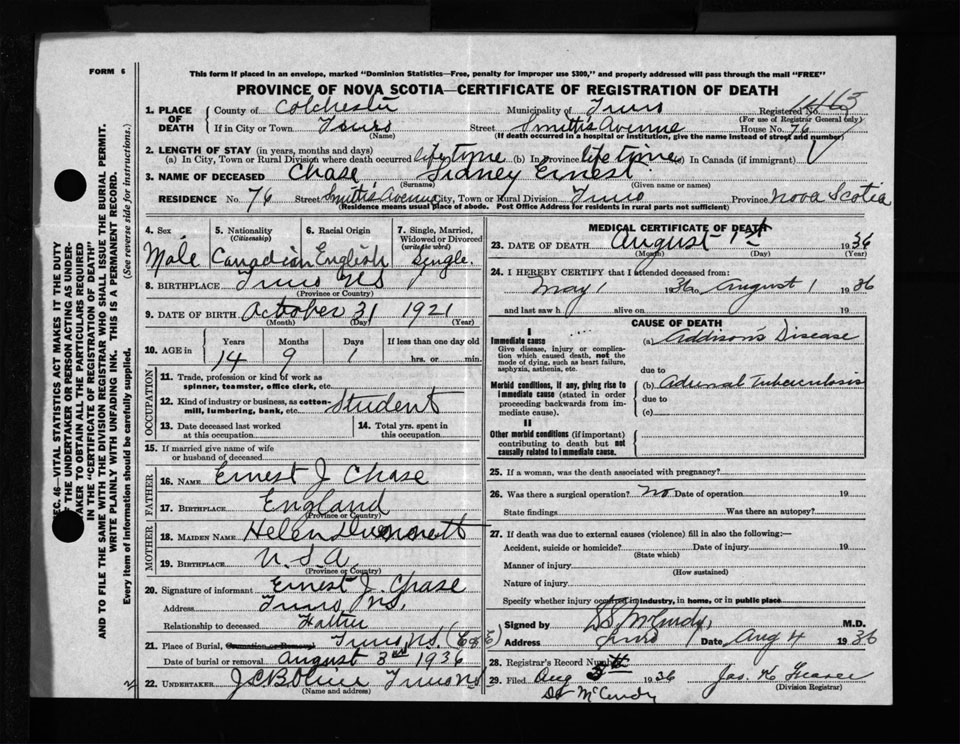 FORM 6
This form if placed in an envelope, marked "Dominion Statistics—Free, penalty for improper use $300," and properly addressed will pass through the mail "FREE"
PROVINCE OF NOVA SCOTIA—CERTIFICATE OF REGISTRATION OF DEATH
1. PLACE OF DEATH
County of Colchester Municipality of Truro Registered No.
(For use of Registrar General only)
If in City or Town Truro Street Smith's Avenue House No. 76
(Name) (If death occurred in a hospital or institution, give the name instead of street and number)
2. LENGTH OF STAY (in years, months and days)
(a) In City, Town or Rural Division where death occurred lifetime (b) In Province lifetime (c) In Canada (if immigrant)
3. NAME OF DECEASED Chase Sidney Ernest
(Surname) (Given name or names)
RESIDENCE No. 76 Street Smith's Avenue City, Town or Rural Division Truro Province Nova Scotia
(Residence means usual place of abode. Post Office Address for residents in rural parts not sufficient)
4. Sex 5. Nationality (Citizenship) 6. Racial Origin 7. Single, Married, Widowed or Divorced (write the word)
Male Canadian English Single.
8. BIRTHPLACE Truro NS
(Province or Country)
9. DATE OF BIRTH October 31 1921
(Month) (Day) (Year)
10. AGE in Years Months Days If less than one day old
14 9 1 hrs. or min.
OCCUPATION
11. Trade, profession or kind of work as spinner, teamster, office clerk, etc.
12. Kind of industry or business, as cotton-mill, lumbering, bank, etc. Student
13. Date deceased last worked at this occupation
14. Total yrs. spent in this occupation
15. If married give name of wife or husband of deceased
FATHER
16. NAME Ernest J Chase
17. BIRTHPLACE England
(Province or Country)
MOTHER
18. MAIDEN NAME Helen
19. BIRTHPLACE U.S.A.
(Province or Country)
20. Signature of informant Ernest J. Chase
Address Truro, NS.
Relationship to deceased Father
21. Place of Burial, Cremation or Removal Truro NS.
Date of burial or removal August 3rd 1936
22. UNDERTAKER Truro NS
(Name and address)
MEDICAL CERTIFICATE OF DEATH
23. DATE OF DEATH August 1st 1936
(Month) (Day) (Year)
24. I HEREBY CERTIFY that I attended deceased from:
May 1 1936 to August 1 1936
and last saw h alive on 19
CAUSE OF DEATH
I
Immediate cause (a) Addison's Disease
Give disease, injury or complication which caused death, not the mode of dying, such as heart failure, asphyxia, asthenia, etc.
due to
Morbid conditions, if any, giving rise to immediate cause (stated in order proceeding backwards from immediate cause).
(b) Adrenal Tuberculosis
due to
(c)
II
Other morbid conditions (if important) contributing to death but not causally related to immediate cause.
25. If a woman, was the death associated with pregnancy?
26. Was there a surgical operation? No Date of operation 19
State findings Was there an autopsy?
27. If death was due to external causes (violence) fill in also the following:—
Accident, suicide or homicide? Date of injury 19
(State which)
Manner of injury
(How sustained)
Nature of injury
Specify whether injury occurred in industry, in home, or in public place
Signed by McCurdy, M.D.
Address Truro Date Aug 4 1936
28. Registrar's Record Number
29. Filed Aug 5th 1936 Jas. K
(Division Registrar)
Dr McCurdy
SEC. 46—VITAL STATISTICS ACT MAKES IT THE DUTY
OF THE UNDERTAKER OR PERSON ACTING AS UNDER-
TAKER TO OBTAIN ALL THE PARTICULARS REQUIRED
IN THE "CERTIFICATE OF REGISTRATION OF DEATH"
AND TO FILE THE SAME WITH THE DIVISION REGISTRAR WHO SHALL ISSUE THE BURIAL PERMIT.
WRITE PLAINLY WITH UNFADING INK. THIS IS A PERMANENT RECORD.
Every item of information should be carefully supplied. (See reverse side for instructions.)